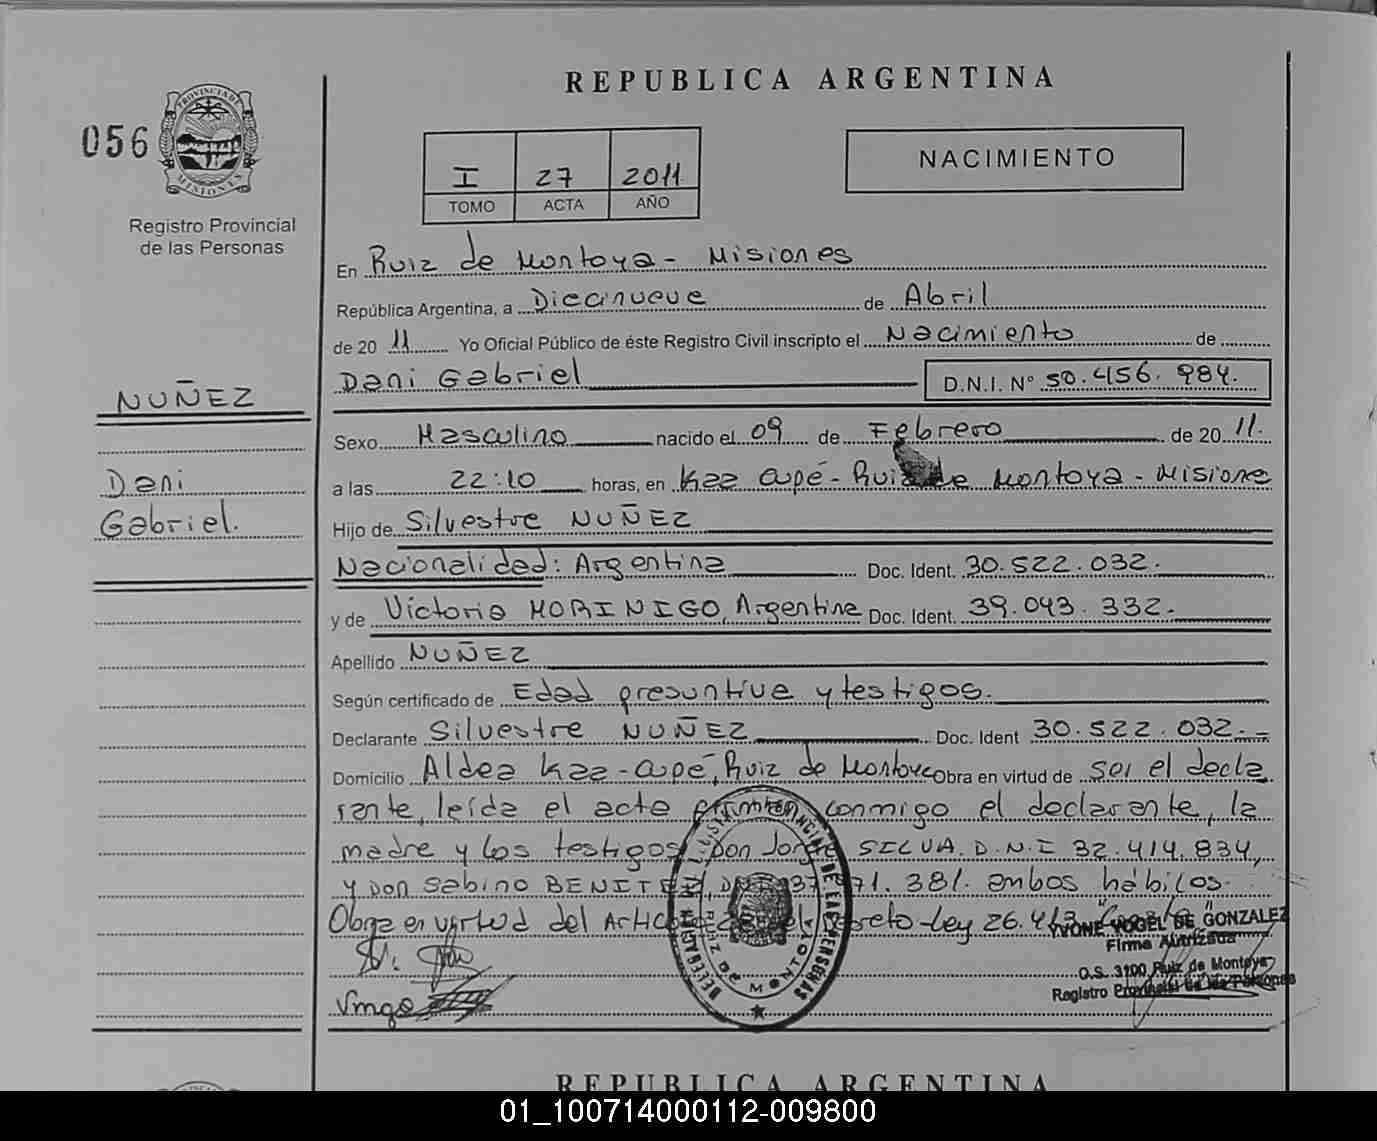 REPUBLICA ARGENTINA
056
PROVINCIA DE MISIONES
Registro Provincial
de las Personas
I 27 2011
TOMO ACTA AÑO
NACIMIENTO
En Ruiz de Montoya - Misiones
República Argentina, a Diecinueve de Abril
de 20 11 Yo Oficial Público de éste Registro Civil inscripto el Nacimiento de
Dani Gabriel D.N.I. N° 50.456.984.
NUÑEZ
Dani
Gabriel.
Sexo Masculino nacido el 09 de Febrero de 20 11.
a las 22:10 horas, en Kaa Cupé - Ruiz de Montoya - Misione
Hijo de Silvestre NUÑEZ
Nacionalidad: Argentina Doc. Ident. 30.522.032.
y de Victoria MORINIGO, Argentina Doc. Ident. 39.043.332.
Apellido NUÑEZ
Según certificado de Edad presuntiva y testigos.
Declarante Silvestre NUÑEZ Doc. Ident 30.522.032.-
Domicilio Aldea Kaa-Cupé, Ruiz de Montoya Obra en virtud de ser el decla
rante, leída el acta conmigo el declarante, la
madre y los testigos Don Jorge SILVA. D.N.I 32.414.834,
y Don Sabino BENITEZ 381. ambos hábiles.
Obra en virtud del Decreto-Ley 26.413
YVONE VOGEL DE GONZALEZ
Firma Autrizada
O.S. 3100 Ruiz de Montoya
Registro Provincial de las Personas
DELEGACION REGISTRO PROVINCIAL DE LAS PERSONAS
RUIZ DE MONTOYA
Vmgo
REPUBLICA ARGENTINA
01_100714000112-009800